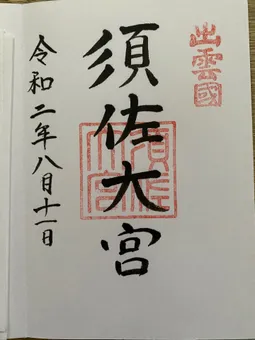 出雲國
須佐大宮
須佐大宮
令和二年八月十一日